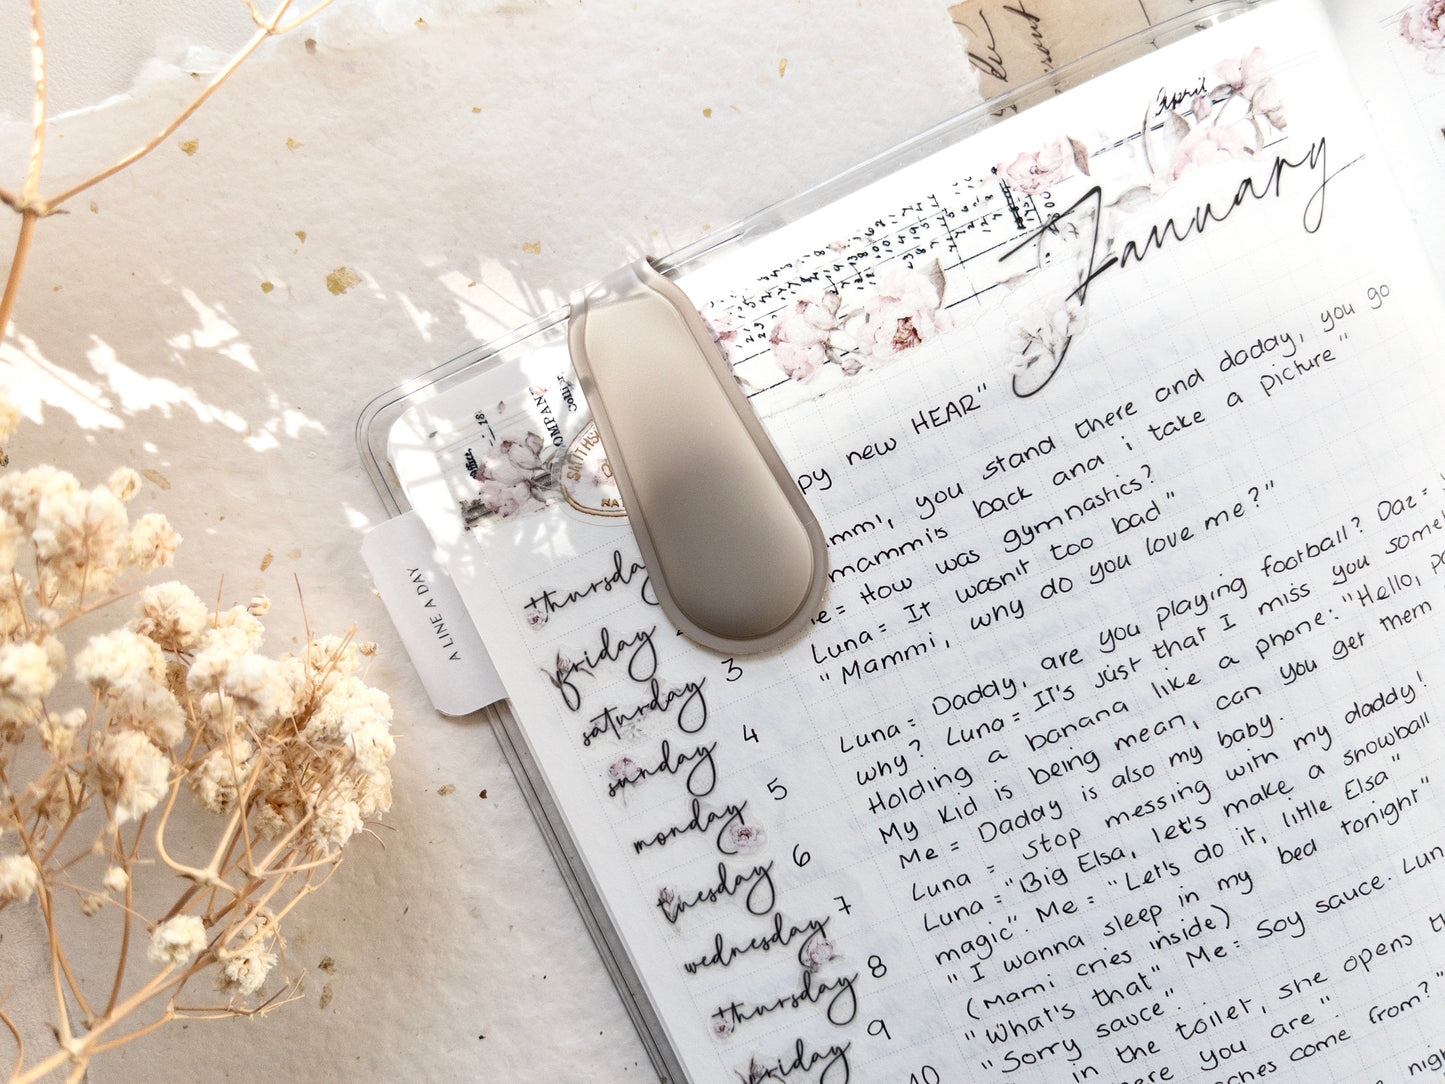 April
January
A LINE A DAY
OMPAN
SMITHS
NA
py new HEAR"
you stand there and daddy, you go
mammis back and i take a picture"
e = How was gymnastics?
Luna = It wasn't too bad"
"Mammi, why do you love me?"
Luna = Daddy, are you playing football? Daz =
why? Luna = It's just that I miss you some
Holding a banana like a phone: "Hello,
My kid is being mean, can you get them
Me = Daddy is also my baby.
Luna = Stop messing with my daddy!
Luna = "Big Elsa, let's make a snowball
magic". Me = "Let's do it, little Elsa"
"I wanna sleep in my bed tonight"
(Mami cries inside)
"What's that" Me = Soy sauce. Lun
"Sorry sauce"
in the toilet, she opens
ere you are".
ches come from?"
nigh
thursday
friday
saturday 3
sunday 4
monday 5
tuesday 6
wednesday 7
thursday 8
friday 9
10